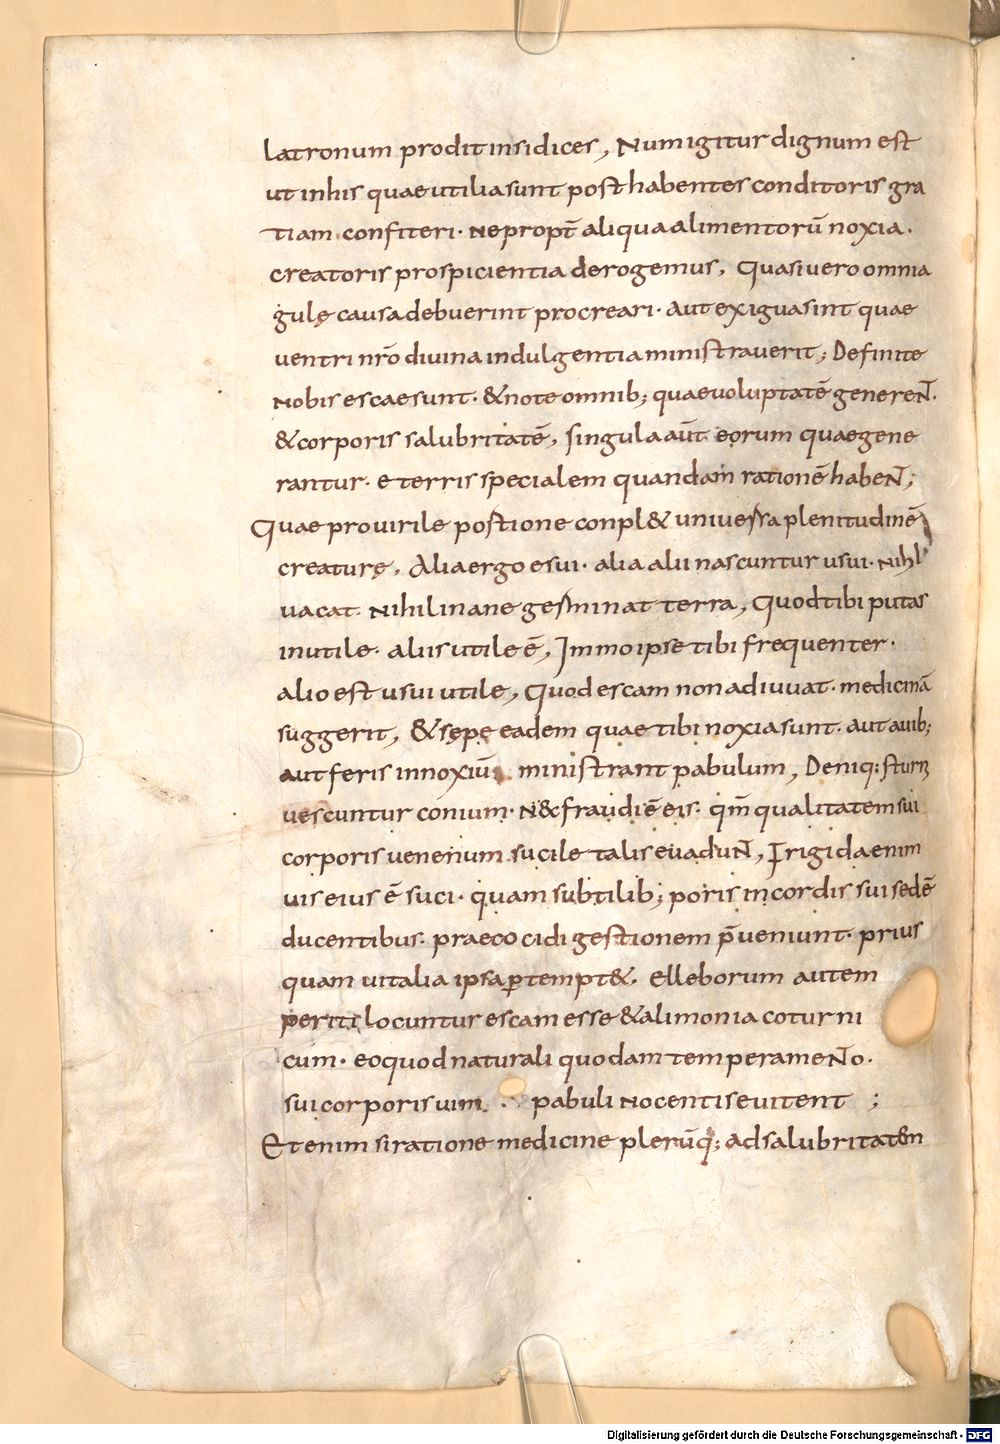 latronum prodit insidices, Num igitur dignum est
ut in his quae utilia sunt post habentes conditoris gra
tiam confiteri. ne propt̄ aliqua alimentorū noxia.
creatoris prospicientia derogemus, Quasi uero omnia
gulę causa debuerint procreari. aut exigua sint quae
ventri nr̄o divina indulgentia ministraverit; Definite
nobis escae sunt. & note omnib; quae voluptatē generen̄t.
& corporis salubritatē, singula aūt eorum quae gene
rantur. e terris specialem quandam rationē haben̄t;
Quae pro virile postione conpl& universa plenitudinē
creaturę, Alia ergo esui. alia alii nascuntur usui. nihl
vacat. nihil inane germinat terra, Quod tibi putas
inutile. aliis utile ē, Immo ipse tibi frequenter.
alio est usui utile, Quod escam non adiuvat. medicinā
suggerit, & sępe eadem quae tibi noxia sunt. aut avib;
aut feris innoxiū ministrant pabulum, Deniq; sturn
uescuntur conium. n& fraudi ē eis. qm̄ qualitatem sui
corporis venenum sucile talis evadun̄t, Frigida enim
uis eius ē suci. quam subtilib; poris in cordis sui sedē
ducentibus. praecocidi gestionem p̄veniunt. prius
quam vitalia ipsa ꝑtempt&. elleborum autem
periti locuntur escam esse & alimonia coturni
cum. eo quod naturali quodam temperamen̄to.
sui corporis vim pabuli nocentis evitent ;
Etenim si ratione medicine plerūq; ad salubritatem
Digitalisierung gefördert durch die Deutsche Forschungsgemeinschaft - DFG